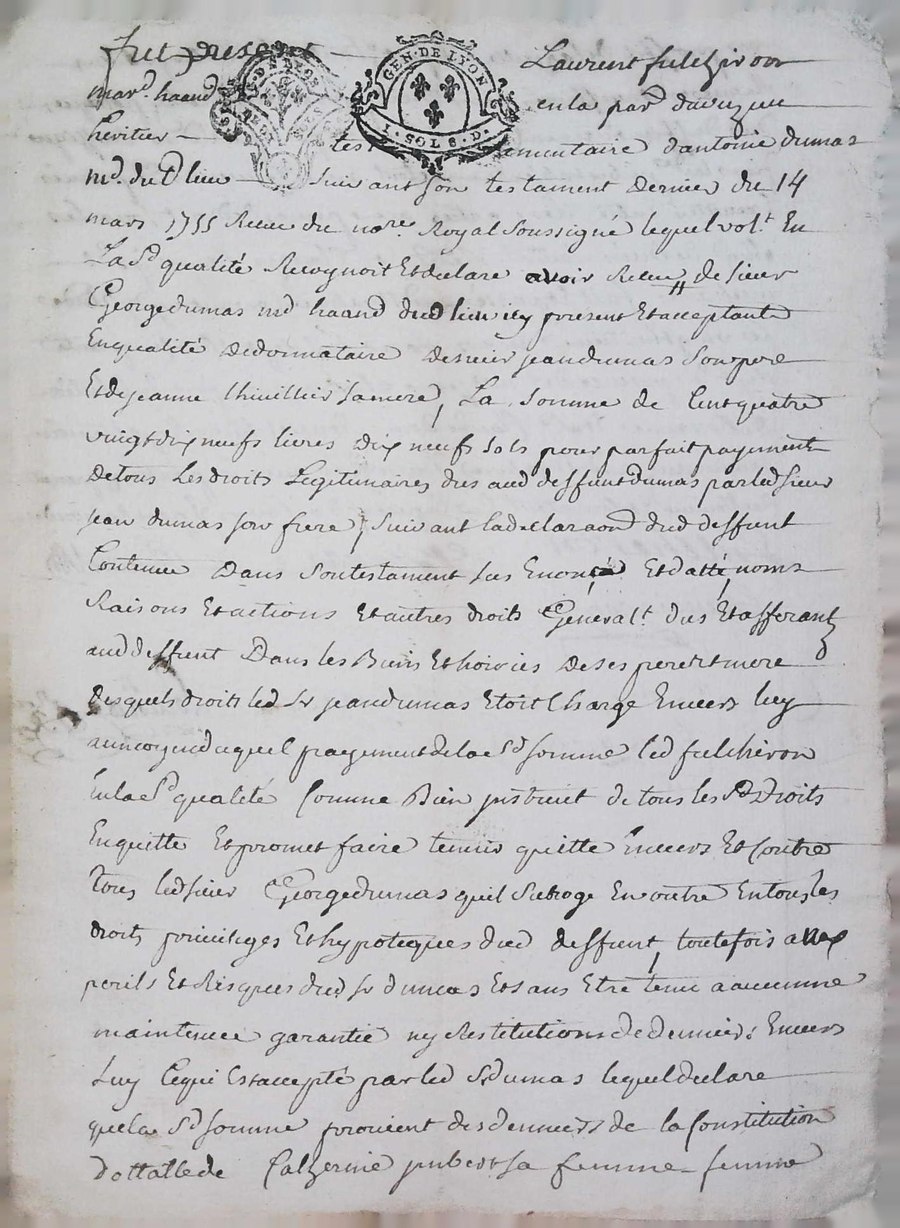 Fut present Laurent fulchiron
mar.d haand en la par.e davezieu
heritier testamentaire d'antoine dumas
GEN · DE LYON
1 · SOL 8 · D ·
m.d dud lieu suivant son testament dernier du 14
mars 1755 Receu du no.re Royal soussigné lequel vol.t En
La s.d qualité Recognoit Et declare avoir Receu de sieur
George dumas m.d haand dud lieu icy present Et acceptant
En qualité de donnataire de sieur jean dumas son pere
Et de jeanne thuillier sa mere, La somme de Cent quatre
vingt dix neufs livres dix neufs sols pour parfait payement
De tous Les droits Legitimaires dus aud deffunt dumas par led sieur
jean dumas son frere, suivant la declara.on dud deffunt
Contenue Dans son testament sus Enoncé Et datté, noms
Raisons Et actions Et autres droits General.t dus Et afferant
aud deffunt Dans les Biens Et hoiries De ses pere et mere
Desquels droits led S.r jean dumas Etoit Chargé Envers luy
au moyen duquel payement de la s.d somme led fulchiron
En la s.d qualité Comme Bien instruit de tous les s.ds Droits
En quitte Et promet faire tenir quitte Envers Et Contre
tous led sieur George dumas quil subroge En outre En tous les
droits privileges Et hypoteques dud deffunt, toutefois aux
perils Et Risques dud S.r dumas Et sans Etre tenu a aucunne
maintenue garantie ny Restitutions de deniers Envers
Luy Ce qui Est accepté par led S.r dumas lequel declare
que la s.d somme provient des denniers de la Constitution
dottalle de Catherine jubert sa femme femme